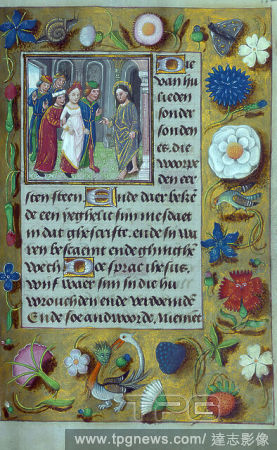 Die
van hu
lieden
sonder
sonden
es. die
woorpe
den eer
sten steen. Ende daer beke
de een yeghelic sijn mesdaet
in dat ghescrifte. ende si wa
ren bescaemt ende ghinghen
wech Doe sprac ihesus.
wijf waer sijn si die hu
wrouchden ende verdoemde
Ende soe andwoorde. niemet
TPG
www.tpgnews.com/達志影像